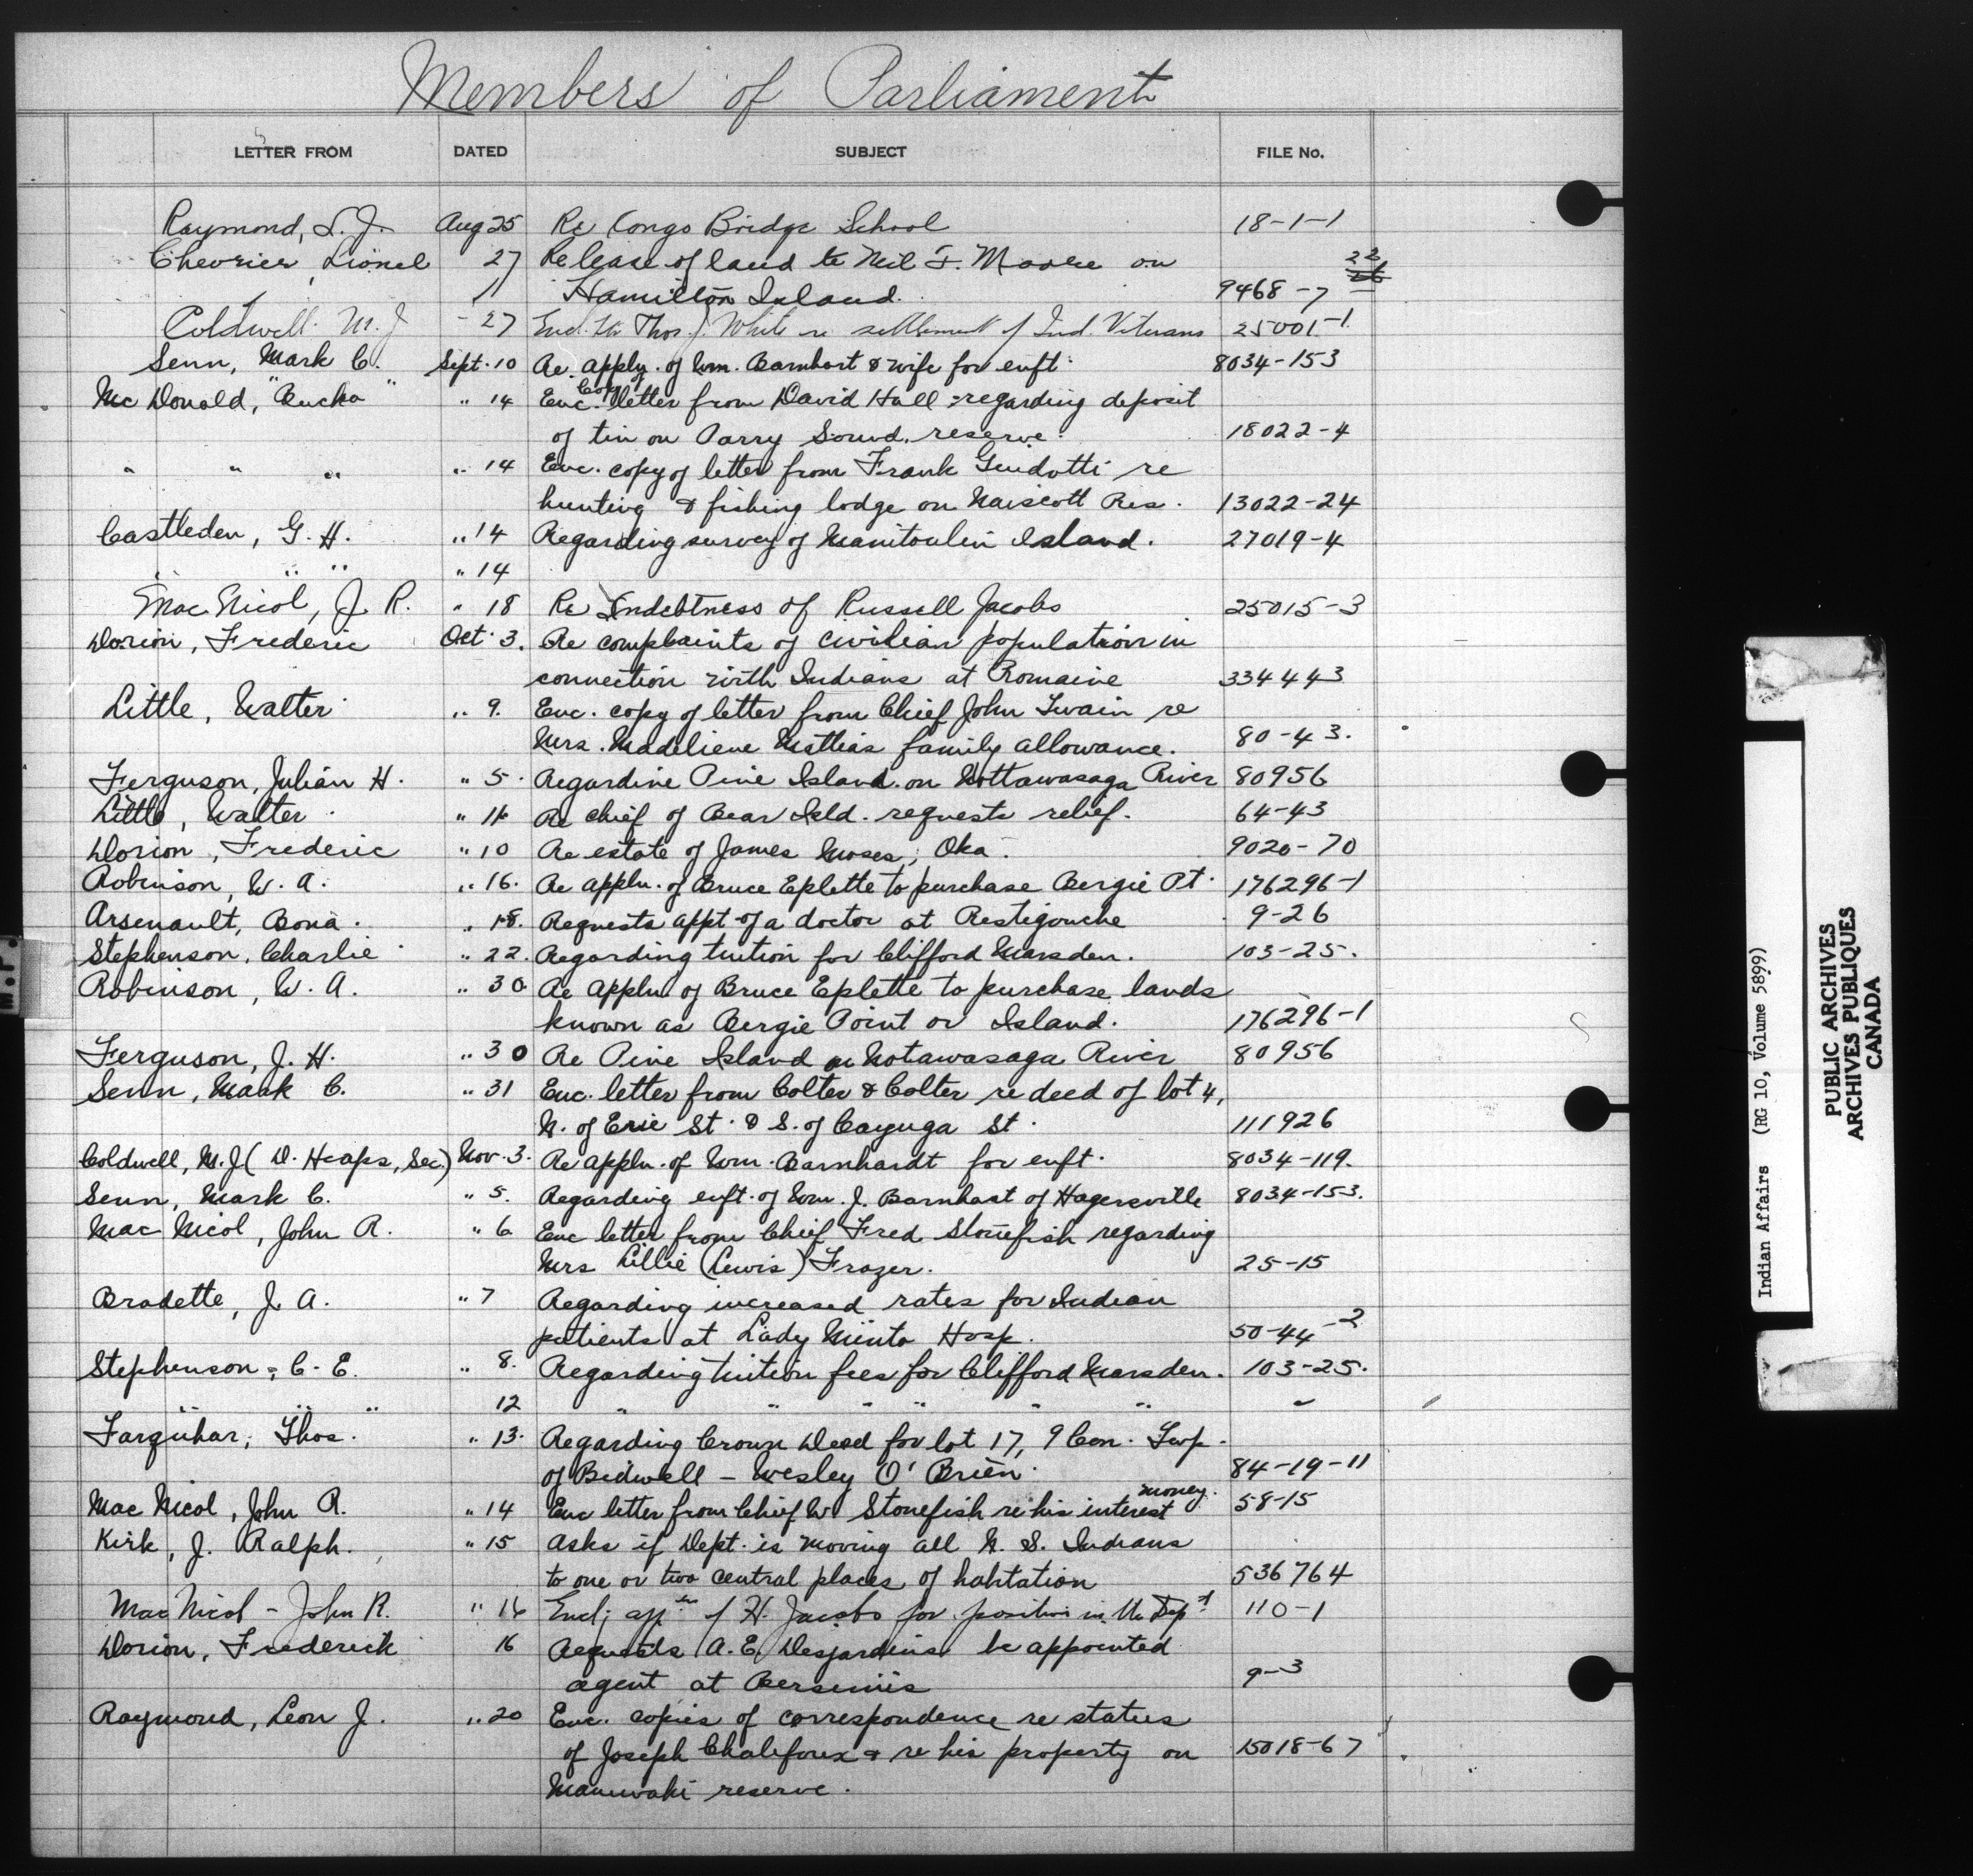 Members of Parliament
LETTER FROM DATED SUBJECT FILE No.
Raymond, L. J. Aug 25 Re Congo Bridge School 18-1-1
Chevrier, Lionel 27 Release of land to Neil F. Moore on 22
Hamilton Island. 9468-7
Coldwell M. J. 27 Encl. ltr Thos. J. White re settlement of Ind. Veterans 25001-1
Senn, Mark C. Sept. 10 Re appln. of Wm. Barnhart & wife for enft. 8034-153
Mc Donald, "Bucko" " 14 Enc. Copy of letter from David Hall regarding deposit
of tin on Parry Sound reserve. 18022-4
" " " " 14 Enc. copy of letter from Frank Guidotti re
hunting & fishing lodge on Naiscott Res. 13022-24
Castleden, G. H. " 14 Regarding survey of Manitoulin Island. 27019-4
" " " " 14
Mac Nicol, J. R. " 18 Re Indebtness of Russell Jacobs 25015-3
Dorion, Frederic Oct. 3. Re complaints of civilian population in
connection with Indians at Romaine 334443
Little, Walter " 9. Enc. copy of letter from Chief John Twain re
Mrs. Madelieve Mattias family allowance. 80-43.
Ferguson, Julian H. " 5. Regardine Pine Island on Nottawasaga River 80956
Little, Walter " 11 Re chief of Bear Isld. requests relief. 64-43
Dorion, Frederic " 10 Re estate of James Moses, Oka. 9020-70
Robinson, W. A. " 16. Re appln. of Bruce Eplette to purchase Bergie Pt. 176296-1
Arsenault, Bona. " 18. Requests appt of a doctor at Restigouche 9-26
Stephenson, Charlie " 22. Regarding tuition for Clifford Marsden. 103-25.
Robinson, W. A. " 30 Re appln of Bruce Eplette to purchase lands
known as Bergie Point or Island. 176296-1
Ferguson, J. H. " 30 Re Pine Island on Notawasaga River 80956
Senn, Mark C. " 31 Enc. letter from Colter & Colter re deed of lot 4,
N. of Erie St. & S. of Cayuga St. 111926
Coldwell, M. J. (D. Heaps, Sec.) Nov. 3. Re appln. of Wm. Barnhardt for enft. 8034-119.
Senn, Mark C. " 5. Regarding enft. of Wm. J. Barnhart of Hagersville 8034-153.
Mac Nicol, John R. " 6 Enc letter from Chief Fred Stonefish regarding
Mrs Lillie (Lewis) Frazer. 25-15
Bradette, J. A. " 7 Regarding increased rates for Indian
patients at Lady Minto Hosp. 50-44-2
Stephenson, C. E. " 8. Regarding tuition fees for Clifford Marsden. 103-25.
" " " 12 " " " " " " "
Farquhar, Thos. " 13. Regarding Crown Deed for lot 17, 9 Con. Twp.
of Bidwell - Wesley O'Brien. 84-19-11
Mac Nicol, John R. " 14 Enc letter from Chief W Stonefish re his interest money. 58-15
Kirk, J. Ralph. " 15 Asks if Dept. is moving all N. S. Indians
to one or two central places of habitation 536764
Mac Nicol - John R. " 16 Encl; appltn of H. Jacobs for position in the Dept. 110-1
Dorion, Frederick 16 Requests A. E. Desjardins be appointed
agent at Bersimis 9-3
Raymond, Leon J. " 20 Enc. copies of correspondence re status
of Joseph Chalifoux & re his property on 15018-67
Maniwaki reserve.
M.P.
Indian Affairs (RG 10, Volume 5899)
PUBLIC ARCHIVES
ARCHIVES PUBLIQUES
CANADA